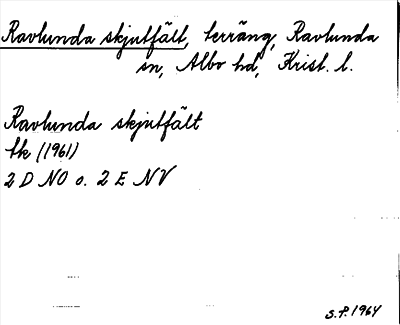 Ravlunda skjutfält, terräng, Ravlunda
sn, Albo hd, Krist. l.
Ravlunda skjutfält
tk (1961)
2 D NO o. 2 E NV
S.P. 1964